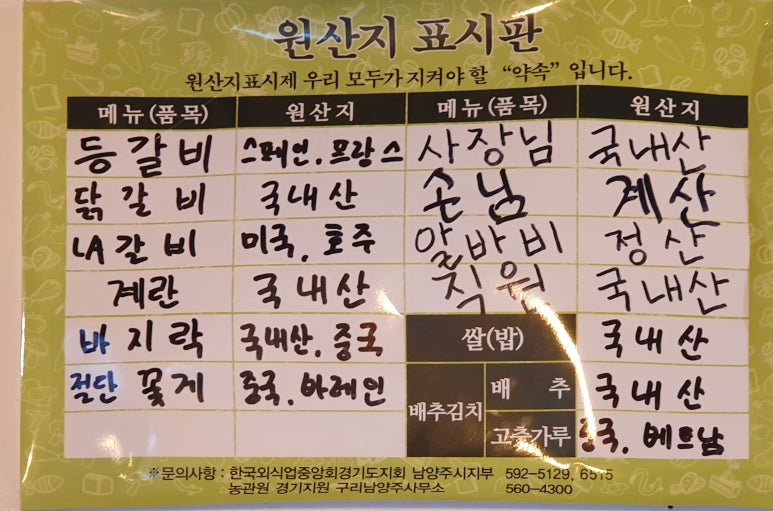 원산지 표시판
원산지표시제 우리 모두가 지켜야 할 “약속” 입니다.
메뉴(품목) 원산지 메뉴(품목) 원산지
등갈비 스페인, 프랑스 사장님 국내산
닭갈비 국내산 손님 계산
LA갈비 미국, 호주 알바비 정산
계란 국내산 직원 국내산
바지락 국내산, 중국 쌀(밥) 국내산
절단 꽃게 중국, 바레인 배추김치 배추 국내산
고춧가루 중국, 베트남
※문의사항 : 한국외식업중앙회경기도지회 남양주시지부 592-5129, 6515
농관원 경기지원 구리남양주사무소 560-4300